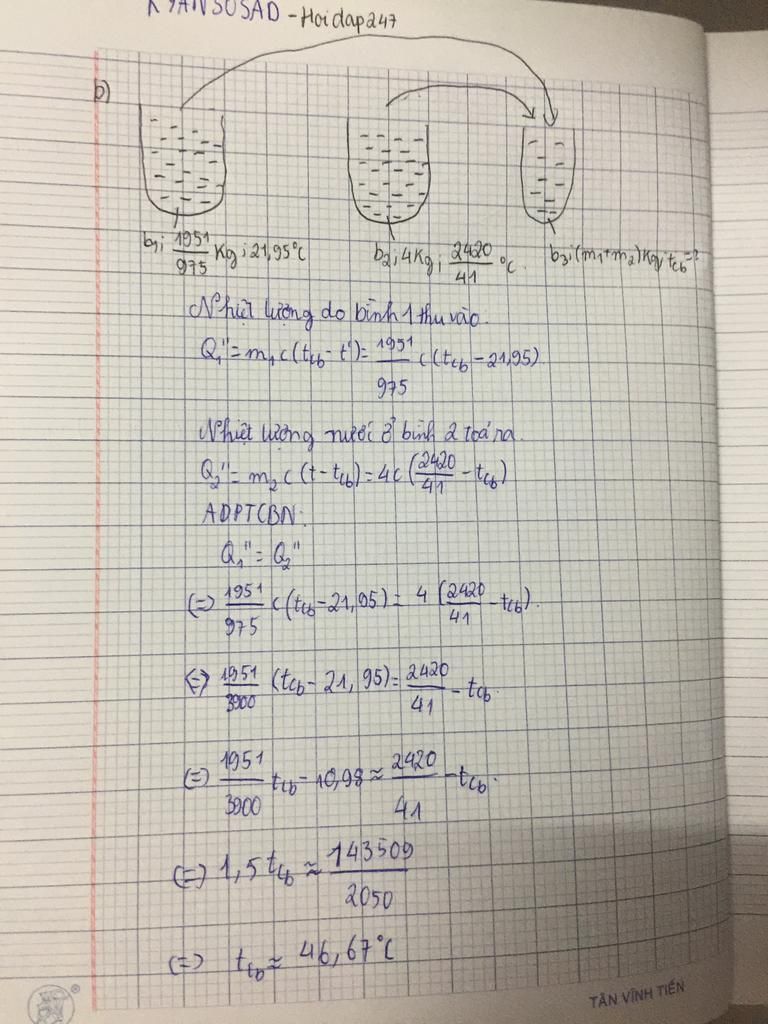 KYANSOSAD - Hoidap247
b)
b1; 1951/975 kg; 21,95°C
b2; 4kg; 2420/41 °C.
b3; (m1+m2)kg; tcb=?
Nhiệt lượng do bình 1 thu vào.
Q1''= m1c(tcb - t')= 1951/975 c(tcb - 21,95)
Nhiệt lượng nước ở bình 2 toả ra.
Q2''= m2c(t - tcb)= 4c(2420/41 - tcb)
ADPTCBN:
Q1''= Q2''
(=) 1951/975 c(tcb - 21,95)= 4(2420/41 - tcb).
(=) 1951/3900 (tcb - 21,95)= 2420/41 - tcb.
(=) 1951/3900 tcb - 10,98 ≈ 2420/41 - tcb.
(=) 1,5tcb ≈ 143509/2050
(=) tcb ≈ 46,67°C
TÂN VĨNH TIẾN